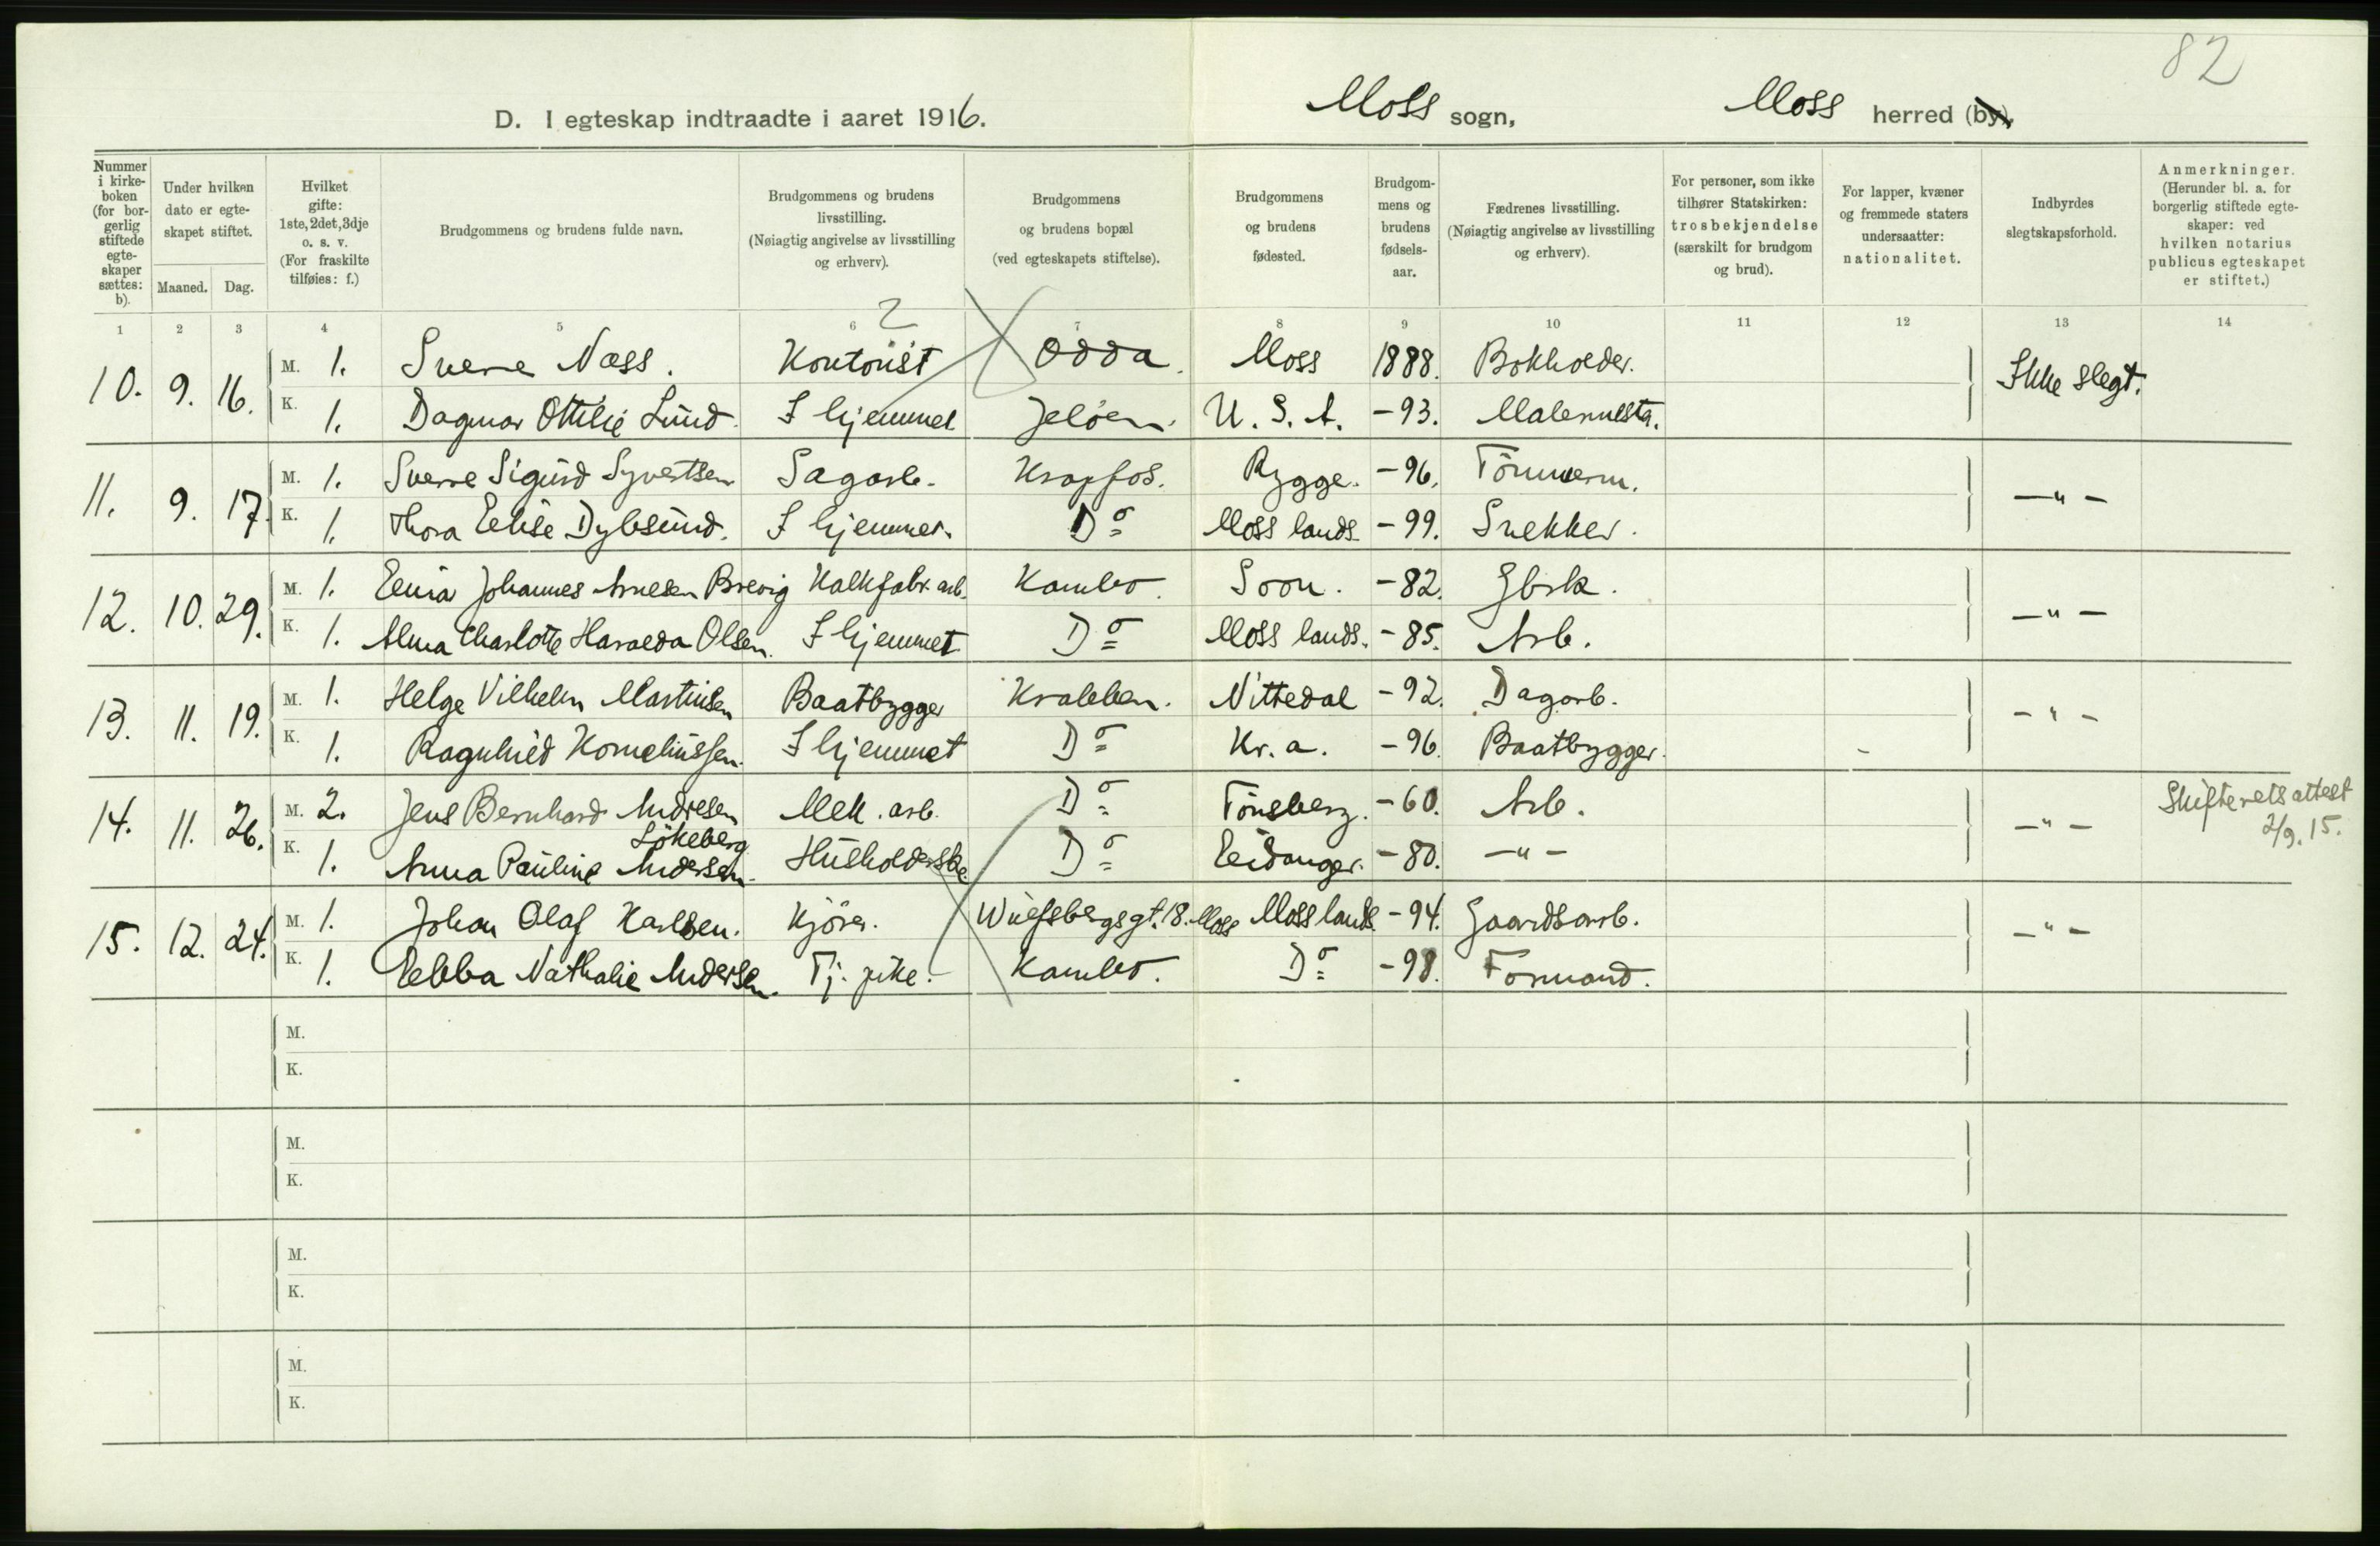 82
D. I egteskap indtraadte i aaret 1916. Moss sogn, Moss herred (by).
Nummer i kirkeboken (for borgerlig stiftede egteskaper sættes: b).
Under hvilken dato er egteskapet stiftet.
Maaned. Dag.
Hvilket gifte: 1ste, 2det, 3dje o. s. v. (For fraskilte tilføies: f.)
Brudgommens og brudens fulde navn.
Brudgommens og brudens livsstilling. (Nøiagtig angivelse av livsstilling og erhverv).
Brudgommens og brudens bopæl (ved egteskapets stiftelse).
Brudgommens og brudens fødested.
Brudgommens og brudens fødselsaar.
Fædrenes livsstilling. (Nøiagtig angivelse av livsstilling og erhverv).
For personer, som ikke tilhører Statskirken: trosbekjendelse (særskilt for brudgom og brud).
For lapper, kvæner og fremmede staters undersaatter: nationalitet.
Indbyrdes slegtskapsforhold.
Anmerkninger. (Herunder bl. a. for borgerlig stiftede egteskaper: ved hvilken notarius publicus egteskapet er stiftet.)
2
1 2 3 4 5 6 7 8 9 10 11 12 13 14
10. 9. 16. M. 1. Sverre Næss. Kontorist Odda. Moss 1888. Bokholder. Ikke slegt.
K. 1. Dagmar Ottilie Lund. I hjemmet Jeløen. U. S. A. -93. Malermestr.
11. 9. 17. M. 1. Sverre Sigurd Syvertsen Sagarb. Krapfos. Rygge. -96. Tömmerm. -"-
K. 1. Thora Elise Dybsund. I hjemmet. Do Moss lands. -99. Snekker.
12. 10. 29. M. 1. Einar Johannes Arnesen Brevig Kalkfabr. arb. Kambo. Soon. -82. Gbrk. -"-
K. 1. Alma Charlotte Haralda Olsen. I hjemmet Do Moss lands. -85. Arb.
13. 11. 19. M. 1. Helge Vilhelm Martinsen Baatbygger Krabben. Nittedal -92. Dagarb. -"-
K. 1. Ragnhild Korneliussen. I hjemmet Do Kr.a. -96. Baatbygger.
14. 11. 26. M. 2. Jens Bernhard Andresen Lökeberg Mek. arb. Do Tönsberg. -60. Arb. -"- Skifterets attest 2/9. 15.
K. 1. Anna Pauline Andersen. Husholderske Do Eidanger. -80. -"-
15. 12. 24. M. 1. Johan Olaf Karlsen. Kjörer. Wulfsbergsgt. 18. Moss Moss lands. -94. Gaardsarb. -"-
K. 1. Ebba Nathalie Andersen. Tj. pike. Kambo. Do -98. Formand.
M.
K.
M.
K.
M.
K.
M.
K.